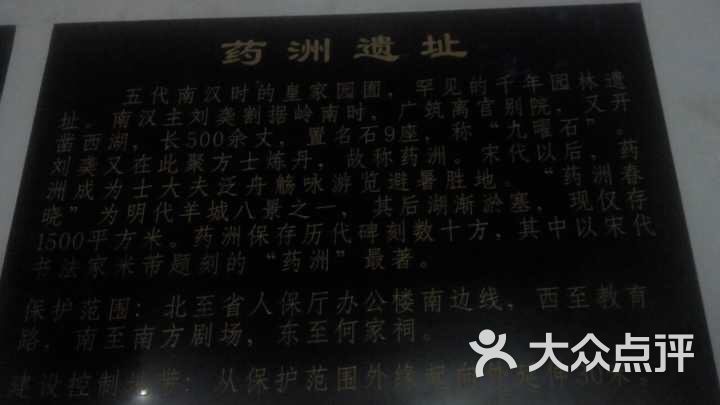 药洲遗址
五代南汉时的皇家园圃，罕见的千年园林遗
址。南汉主刘䶮割据岭南时，广筑离宫别院，又开
凿西湖，长500余丈，置名石9座，称“九曜石”。
刘䶮又在此聚方士炼丹，故称药洲。宋代以后，药
洲成为士大夫泛舟觞咏游览避暑胜地。“药洲春
晓”为明代羊城八景之一，其后湖渐淤塞，现仅存
1500平方米。药洲保存历代碑刻数十方，其中以宋代
书法家米芾题刻的“药洲”最著。
保护范围：北至省人保厅办公楼南边线，西至教育
路，南至南方剧场，东至何家祠。
建设控制地带：从保护范围外缘起向外延伸30米。
大众点评